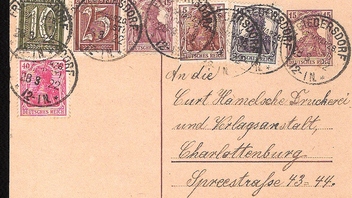 10
25
15
40
DEUTSCHES REICH
DEUTSCHES REICH
DEUTSCHES REICH
DEUTSCHES REICH
An die
Curt Hamelsche Druckerei
und Verlagsanstalt,
Charlottenburg
Spreestraße 43-44.